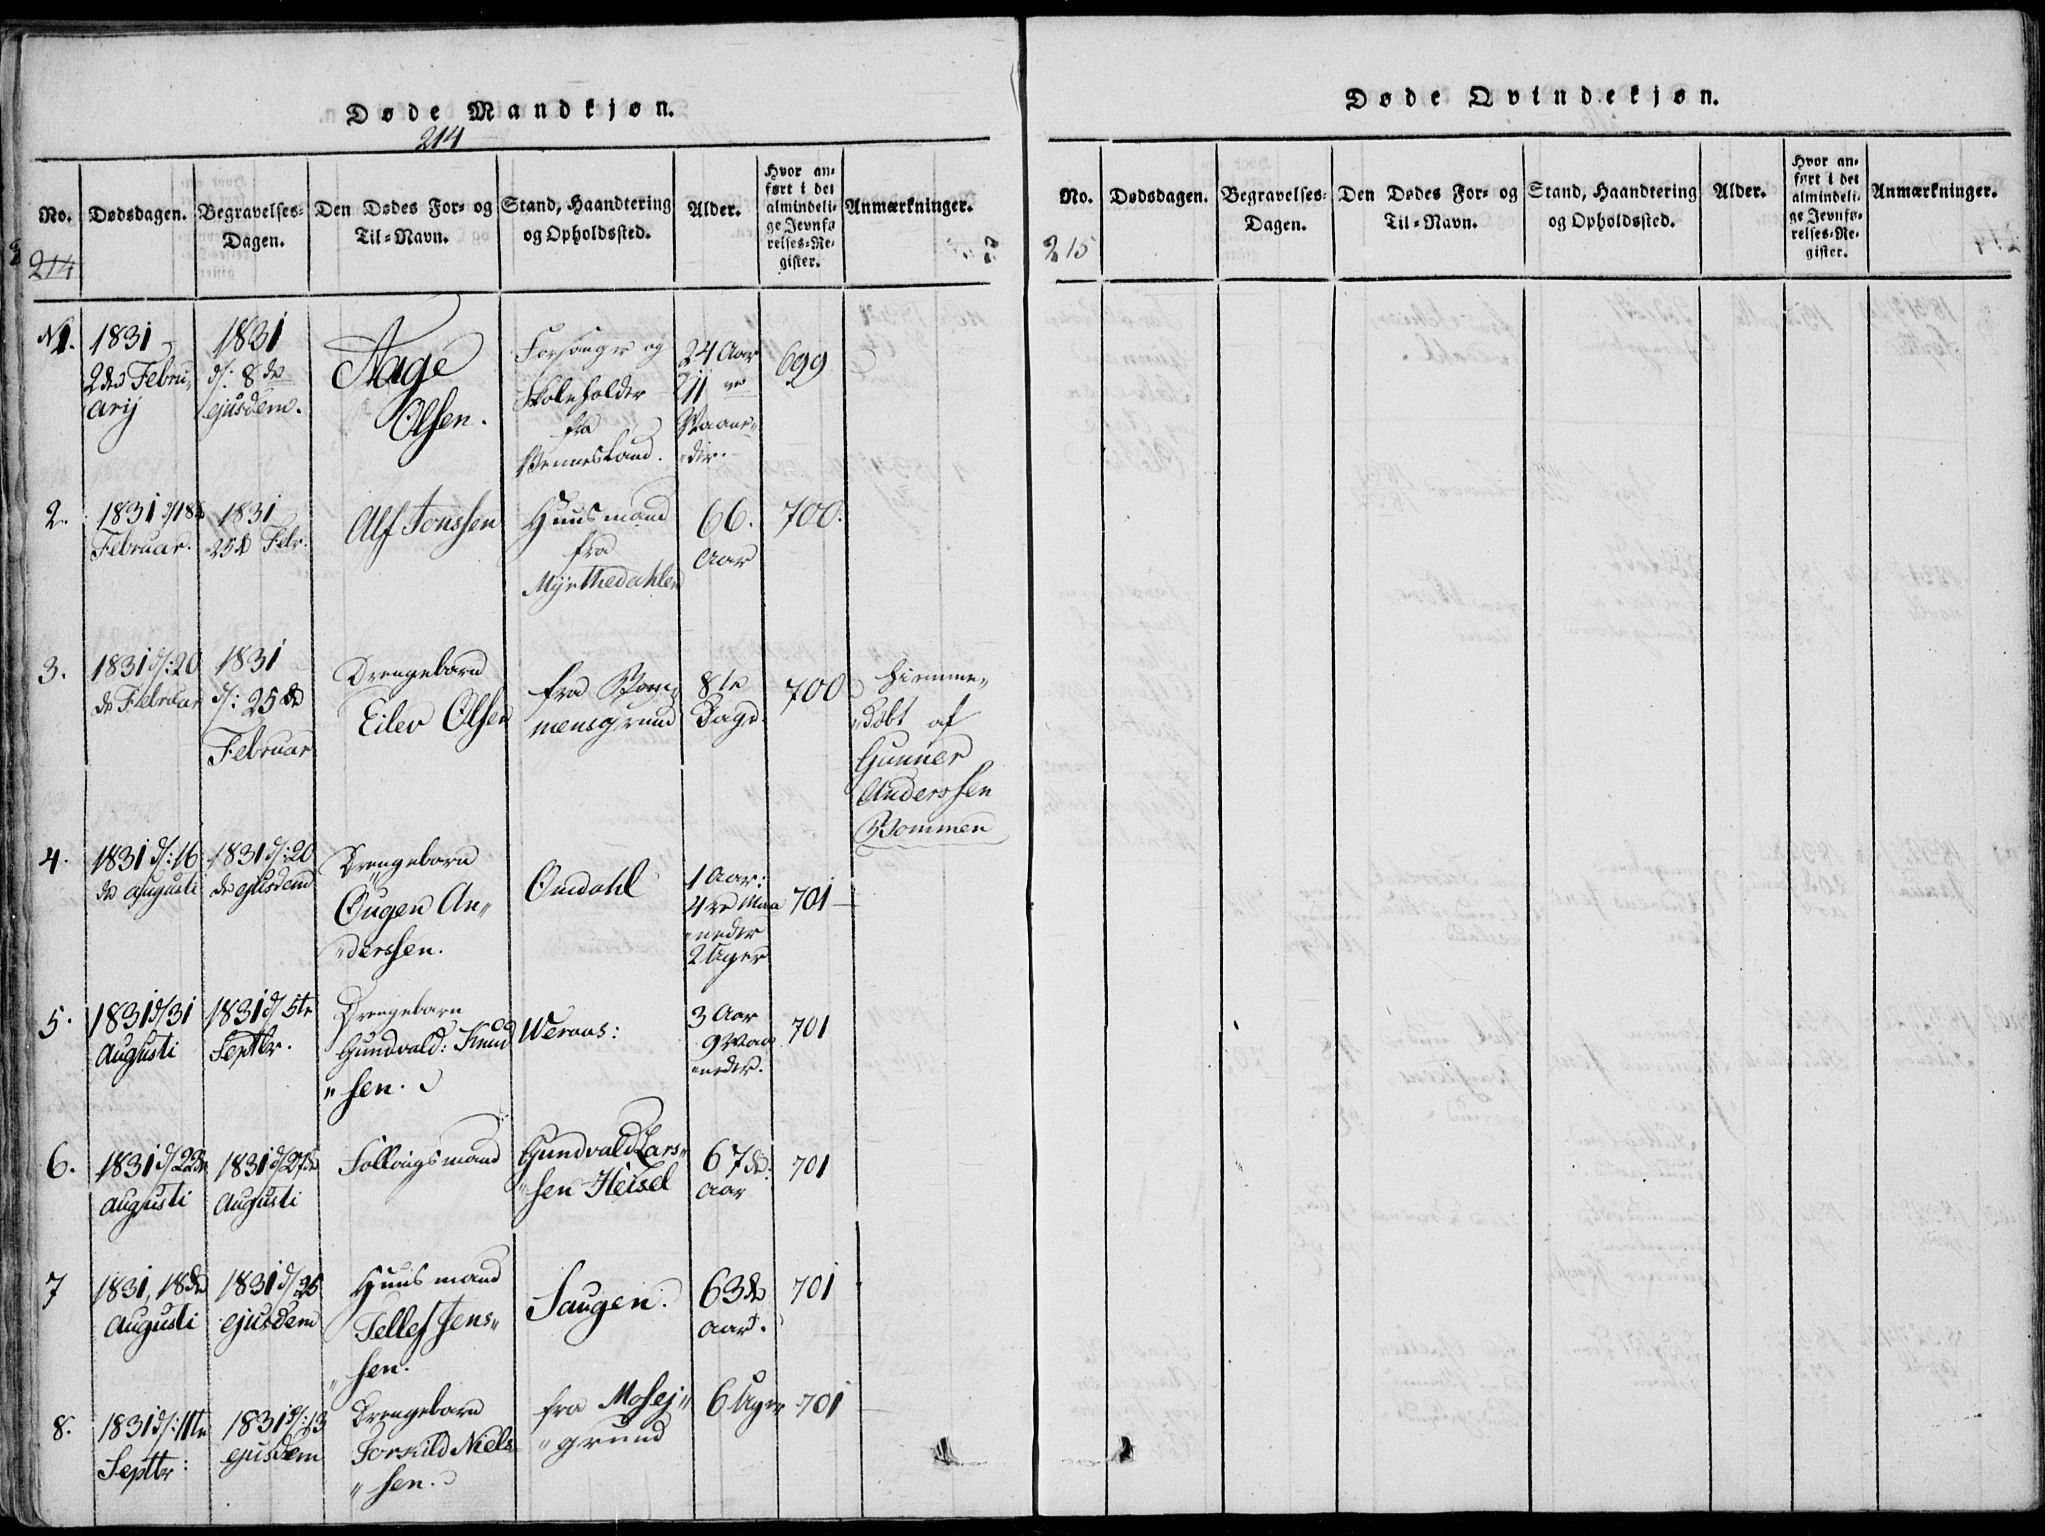 Døde Mandkjøn.
214
No.
Dødsdagen.
Begravelses-
Dagen.
Den Dødes For- og
Til-Navn.
Stand, Haandtering
og Opholdssted.
Alder.
Hvor an-
ført i det
almindeli-
ge Jevnfø
relses-Re-
gister.
Anmærkninger.
214
N1.
1831
2den Febru,
arij
1831
d: 8de
ejusdem.
Aage
Olsen.
Forsanger og
Skoleholder
fra
Vennesland.
24 Aar
11 ve
Maane„
„der.
699
2.
1831 d/18de
Februar.
1831
25d Febr.
Alf Jonssen
Huusmand
fra
Myrthedahlen
66.
Aar
700.
3.
1831 d:20
de Februar
1831
d: 25de
Februar
Drengebarn
Eilev Olsen
fra Vom„
mensgrund
8te
Dage.
700
hiemme„
„døbt af
Gunner
Anderssen
Vommen
4.
1831 d:16
de augusti
1831 d:20
de ejusdem
Drengebarn
Ougen An„
„derssen.
Omdahl
1 Aar:
4re Maa
„neder
2 Uger
701
5.
1831 d/31
augusti
1831 d/5te
Septbr.
Drengebarn
Gundvald: Knud
„sen.
Weraas:
3 Aar
9 Maa
„neder.
701
6.
1831 d/22de
augusti
1831 d/27de
Augusti
Follougsmand
Gundvald Lars„
„sen Heisel
67de
aar
701
7
1831, 18de
augusti
1831 d/25
ejusdem
Huusmand
Tellef Jens„
„sen.
Saugen.
63de
aar.
701
8.
1831 d:11te
Septbr:
1831 d:13
ejusdem
Drengebarn
Torkild Niels
„sen.
fra Mosej„
„grund
6 Uger
701
Døde Qvindekjøn.
No.
Dødsdagen.
Begravelses-
Dagen.
Den Dødes For- og
Til-Navn.
Stand, Haandtering
og Opholdssted.
Alder.
Hvor an-
ført i det
almindeli-
ge Jevnfø-
relses-Re-
gister.
Anmærkninger.
215